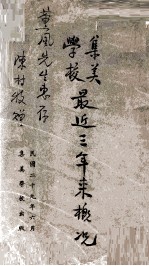 集美
學校
最近三年來概況
民國二十九年六月
集美學校出版
薰風先生惠存
陳村牧贈